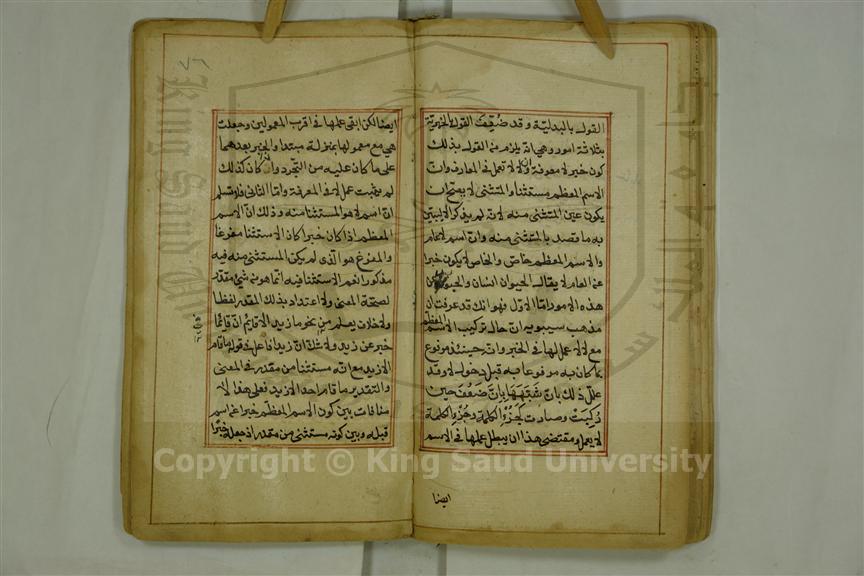 القول بالبدلية وقد ضُيِّفَ القول بالخبرية
بثلاثة امور وهي انه يلزم من القول بذلك
كون خبر لا معرفة ولا لا تعمل في المعارف وان
الاسم المعظم مستثنا والمستثنى لا يصح ان
يكون عين المستثنى منه لانه لم يذكر الا ليبين
به ما قصد بالمستثنى منه وان اسم لا عام
والاسم المعظم خاص والخاص لا يكون خبرا
عن العام لا يقال الحيوان انسان والجواب عن
هذه الامور اما الاول فهو انك قد عرفت ان
مذهب سيبويه ان حال تركيب الاسم المعظم
مع لا لا عمل لها في الخبر وانه حينئذ مرفوع
بما كان به مرفوعا به قبل دخول لا وقد
علل ذلك بان شَبَهَهَا بِاِنَّ ضَعُفَ حين
رُكِبَتْ وصارت كجُزْءِ الكلمة وجُزْءُ الكلمة
لا يعمل ومقتضى هذا ان يبطل عملها في الاسم
ايضا
٧٦
ايضا لكن ابقى عملها في اقرب المعمولين وجعلت
هي مع معمولها بمنزلة مبتدا والخبر بعدهما
على ما كان عليه من التجرد وان كان كذلك
لم يثبت عمل لا في المعرفة واما الثاني فلا نسلم
ان اسم لا هو المستثنا منه وذلك ان الاسم
المعظم اذا كان خبرا كان الاستثنا مفرغا
والمفرغ هو الذي لم يكن المستثنى منه فيه
مذكورا نعم الاستثنا فيه انما هو من شيء مقدر
لصحة المعنى ولا اعتداد بذلك المقدر لفظا
ولا خلاف يعلم من نحو ما زيد الا قايم ان قايما
خبر عن زيد ولا شك ان زيدا فاعل في قوله ما قام
الا زيد مع انه مستثنا من مقدر في المعنى
والتقدير ما قام احد الا زيد فعلى هذا لا
منافات بين كون الاسم المعظم خبرا عن اسم
قبله وبين كونه مستثنى من مقدر اذ جعله خبرًا
Copyright © King Saud University